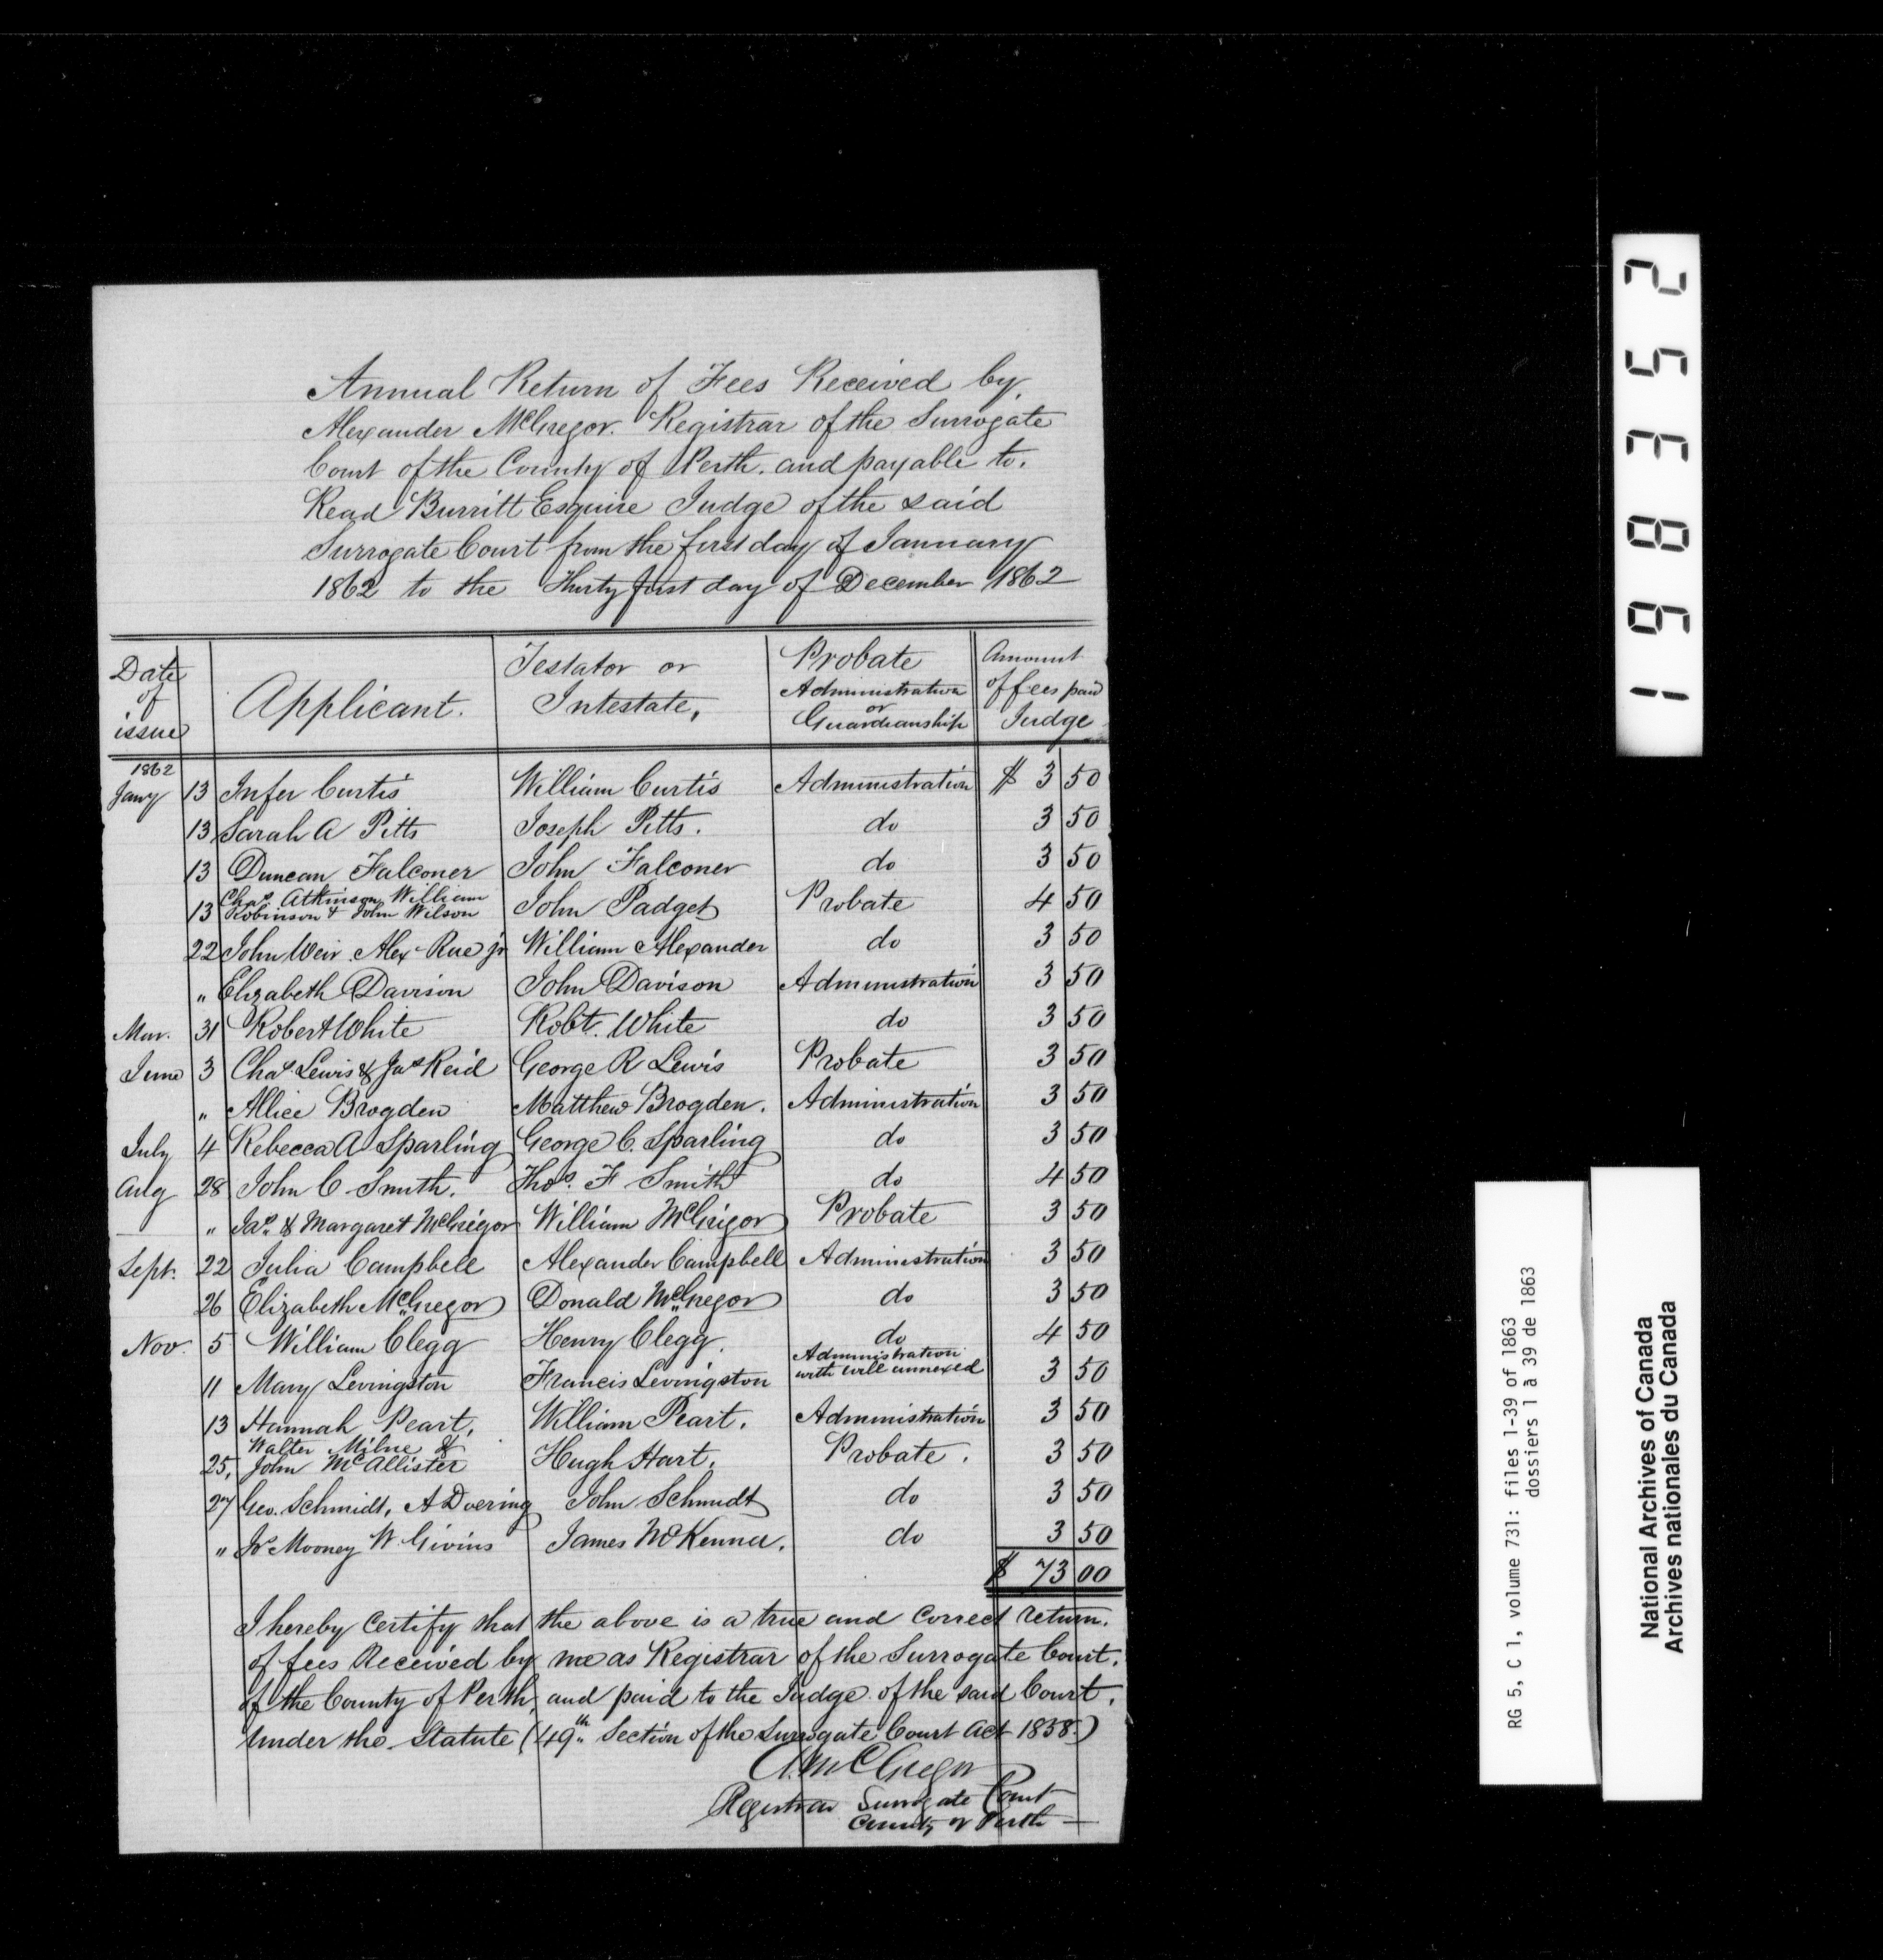 Annual Return of Fees Received by,
Alexander McGregor. Registrar of the Surrogate
Court of the County of Perth. and payable to.
Read Burritt Esquire Judge of the said
Surrogate Court from the first day of January
1862 to the Thirty first day of December 1862
Date of issue Applicant. Testator or Intestate, Probate Administration or Guardianship Amount of fees paid Judge
1862
Jany 13 Infer Curtis William Curtis Administration $ 3 50
13 Sarah A Pitts Joseph Pitts. do 3 50
13 Duncan Falconer John Falconer do 3 50
Chas. Atkinson, William
13 Robinson & John Wilson John Padget Probate 4 50
22 John Weir. Alex Rue jr William Alexander do 3 50
" Elizabeth Davison John Davison Administration 3 50
Mar. 31 Robert White Robt. White do 3 50
June 3 Chas. Lewis & Jas Reid George R Lewis Probate 3 50
" Allice Brogden Matthew Brogden. Administration 3 50
July 4 Rebecca A Sparling George C. Sparling do 3 50
Aug 28 John C Smith. Thos. F Smith do 4 50
" Jas. & Margaret McGrigor William McGrigor Probate 3 50
Sept. 22 Julia Campbell Alexander Campbell Administration 3 50
26 Elizabeth McGregor Donald McGregor do 3 50
Nov. 5 William Clegg Henry Clegg. do 4 50
11 Mary Levingston Francis Levingston Administration with will annexed 3 50
13 Hannah Peart. William Peart. Administration 3 50
Walter Milne &
25, John McAllister Hugh Hart. Probate. 3 50
27 Geo. Schmidt, A Doering John Schmidt do 3 50
" Jos Mooney W. Givins James McKenna. do 3 50
$ 73 00
I hereby certify that the above is a true and correct return.
of fees Received by me as Registrar of the Surrogate Court.
of the County of Perth, and paid to the Judge of the said Court.
under the Statute (49th Section of the Surrogate Court Act 1858.)
A. McGregor
Registrar Surrogate Court
County of Perth
198352
RG 5, C 1, volume 731: files 1-39 of 1863
dossiers 1 à 39 de 1863
National Archives of Canada
Archives nationales du Canada